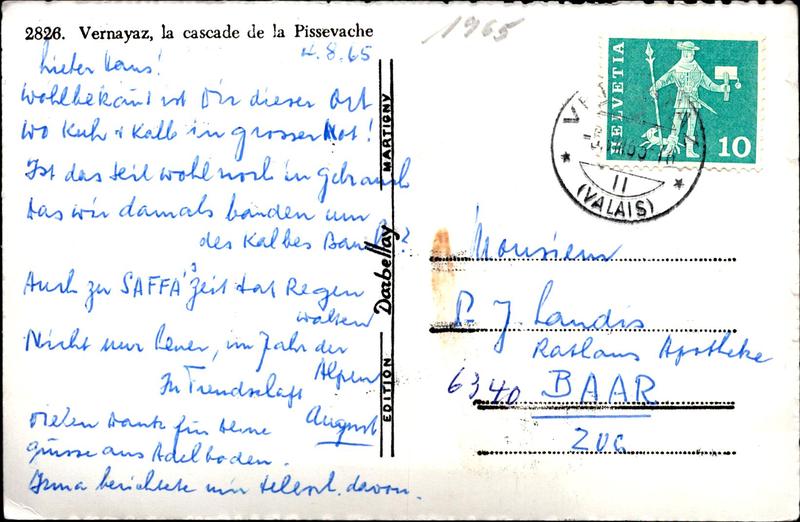 2826. Vernayaz, la cascade de la Pissevache
4.8.65
Lieber Hans!
Wohlbekannt ist Dir dieser Ort
wo Kuh + Kalb in grosser Not!
Ist das Seil wohl noch in Gebrauch
das wir damals banden um
des Kalbes Bauch?
Auch zu SAFFA's Zeit tat Regen
walten
Nicht nur heuer, im Jahr der
Alpen
In Freundschaft
August
Vielen Dank für Deine
Grüsse aus Adelboden.
Irma berichtete mir teleph. davon.
EDITION Darbellay MARTIGNY
1965
HELVETIA
10
II
(VALAIS)
Monsieur
J. Landis
Rathaus Apotheke
6340 BAAR
ZUG